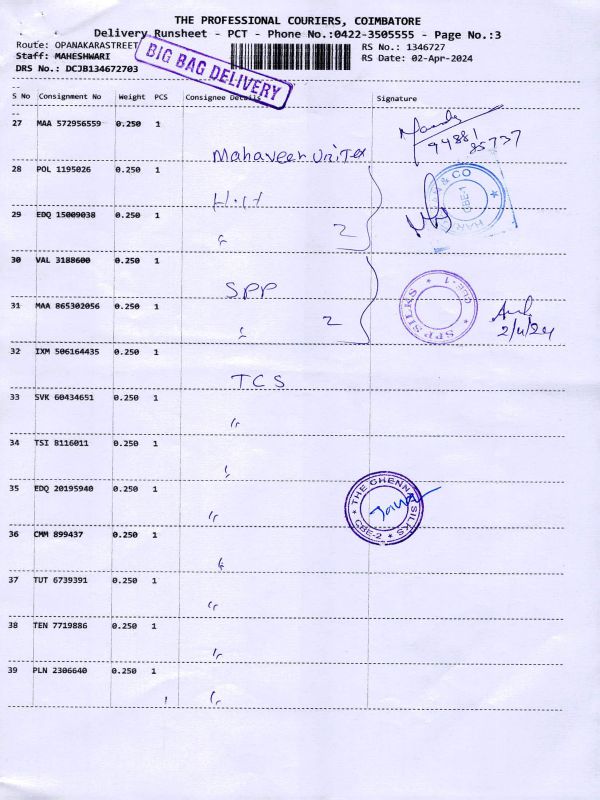 THE PROFESSIONAL COURIERS, COIMBATORE
Delivery Runsheet - PCT - Phone No.:0422-3505555 - Page No.:3
Route: OPANAKARASTREET
Staff: MAHESHWARI
DRS No.: DCJB134672703
BIG BAG DELIVERY
RS No.: 1346727
RS Date: 02-Apr-2024
S No Consignment No Weight PCS Consignee Details Signature
27 MAA 572956559 0.250 1
Mahaveer Unitex
94881
85737
28 POL 1195026 0.250 1
& CO
CBE-1
29 EDQ 15009038 0.250 1
" 2
30 VAL 3188600 0.250 1
SPP
SPP SILKS * CBE-1 *
31 MAA 865302056 0.250 1
" 2
2/4/24
32 IXM 506164435 0.250 1
TCS
33 SVK 60434651 0.250 1
"
34 TSI 8116011 0.250 1
"
35 EDQ 20195940 0.250 1
"
THE CHENNAI SILKS
* CBE-2 *
36 CMM 899437 0.250 1
"
37 TUT 6739391 0.250 1
"
38 TEN 7719886 0.250 1
"
39 PLN 2306640 0.250 1
"